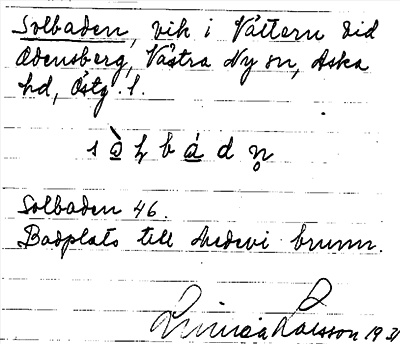 Solbaden, vik i Vättern vid
Odensberg, Västra Ny sn, Aska
hd, Östg. l.
s ò̲ ł b á̲ d n̥
Solbaden 46.
Badplats till Medevi brunn.
Linnéa Larsson 193